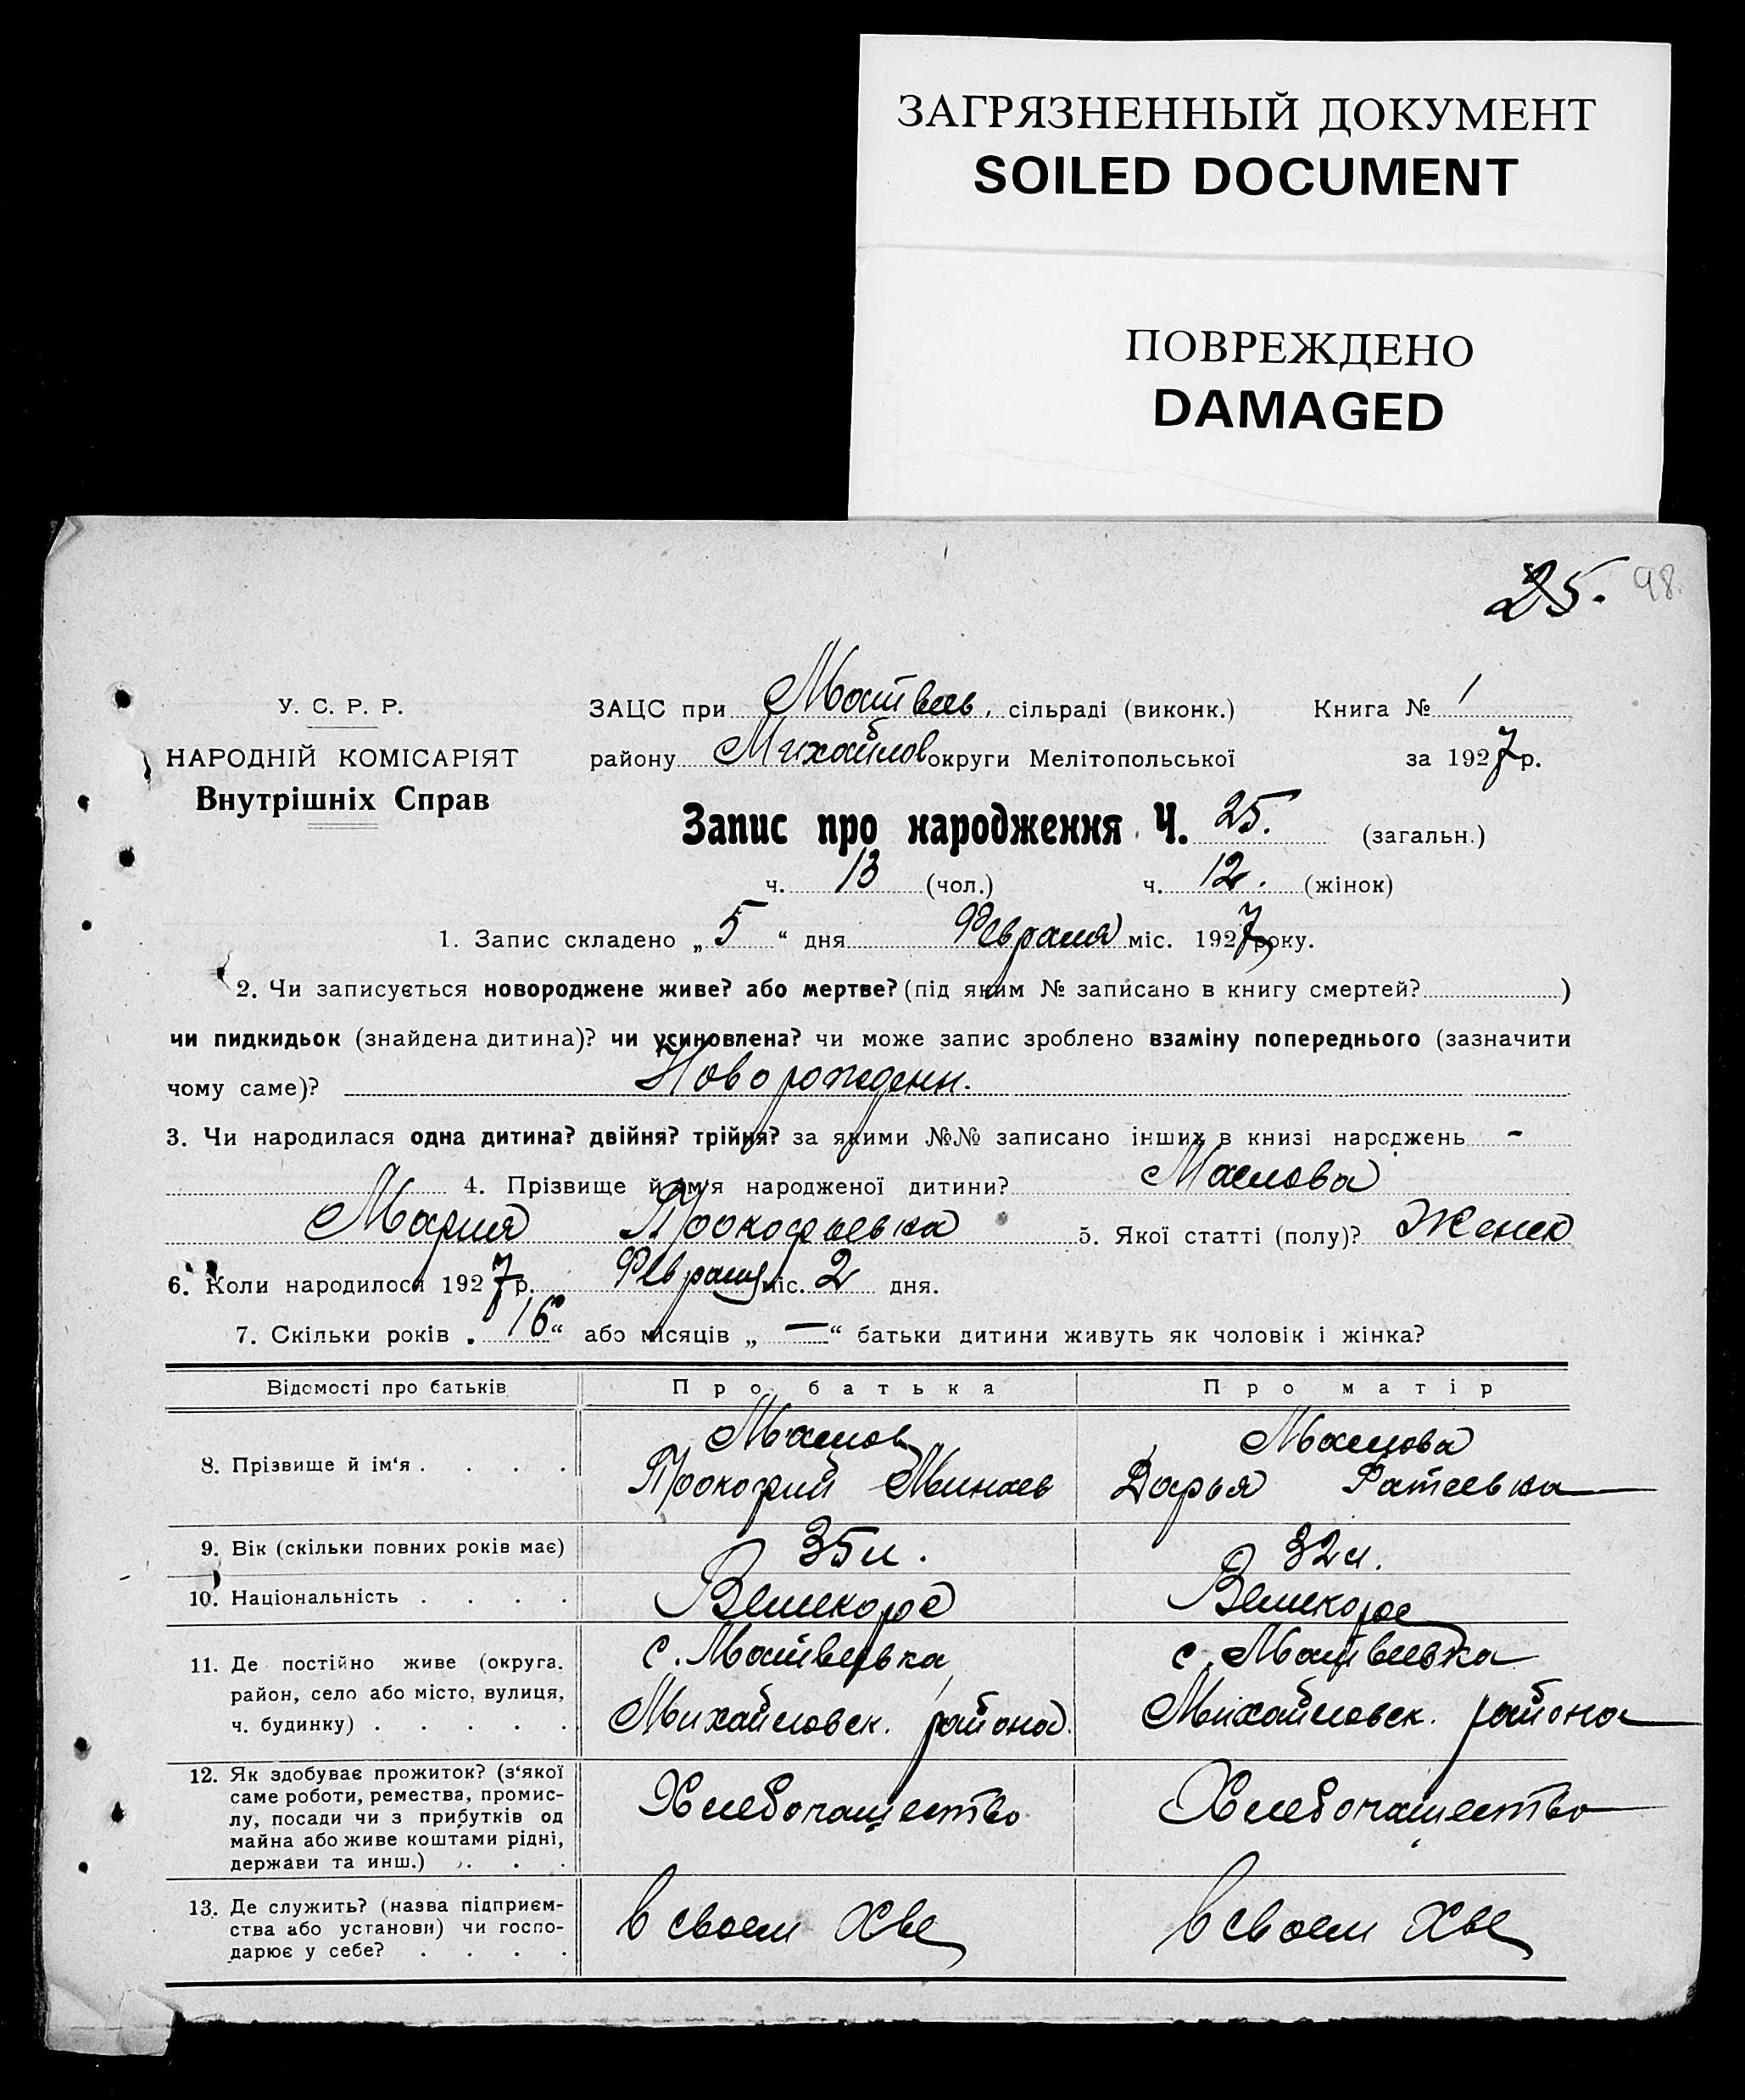 ЗАГРЯЗНЕННЫЙ ДОКУМЕНТ
SOILED DOCUMENT
ПОВРЕЖДЕНО
DAMAGED
25. 98.
У. С. Р. Р.
НАРОДНІЙ КОМІСАРІЯТ
Внутрішніх Справ
ЗАЦС при Матвеев, сільраді (виконк.) Книга № 1
району Михайлов округи Мелітопольської за 1927 р.
Запис про народження Ч. 25. (загальн.)
ч. 13 (чол.) ч. 12. (жінок)
1. Запис складено „5“ дня Февраля міс. 1927 року.
2. Чи записується новороджене живе? або мертве? (під яким № записано в книгу смертей? )
чи пидкидьок (знайдена дитина)? чи усиновлена? чи може запис зроблено взаміну попереднього (зазначити
чому саме)? Новорожденн.
3. Чи народилася одна дитина? двійня? трійня? за якими №№ записано інших в книзі народжень -
4. Прізвище й ім'я народженої дитини? Маслова
Мария Прокофьевна 5. Якої статті (полу)? Женск
6. Коли народилося 1927 р. Февраля міс. 2 дня.
7. Скільки років „16“ або місяців „—“ батьки дитини живуть як чоловік і жінка?
Відомості про батьків Про батька Про матір
8. Прізвище й ім'я . . . . Маслов Прокофий Минаев Маслова Дарья Фатеевна
9. Вік (скільки повних років має) 35 л. 32 л.
10. Національність . . . . Великорос Великорос
11. Де постійно живе (округа, район, село або місто, вулиця, ч. будинку) . . . . . с. Матвеевка Михайловск. района с. Матвеевка Михайловск. района
12. Як здобуває прожиток? (з'якої саме роботи, ремества, промислу, посади чи з прибутків од майна або живе коштами рідні, держави та инш.) . . . Хлебопашество Хлебопашество
13. Де служить? (назва підприємства або установи) чи господарює у себе? . . . . В своем Хве В своем Хве